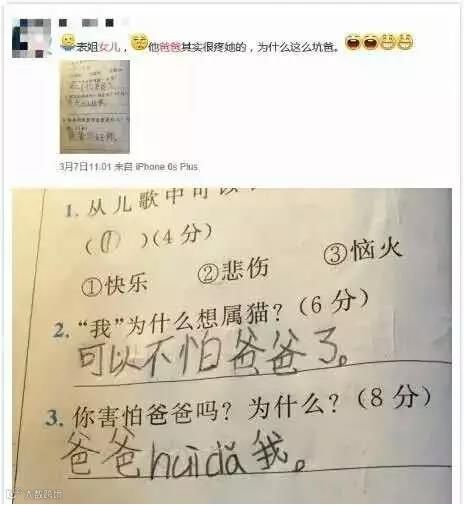 表姐女儿，他爸爸其实很疼她的，为什么这么坑爸。
3月7日11:01 来自 iPhone 6s Plus
1. 从儿歌中可以
(①)(4分)
①快乐 ②悲伤 ③恼火
2. “我”为什么想属猫？(6 分)
可以不怕爸爸了。
3. 你害怕爸爸吗？为什么？(8 分)
爸爸huì dǎ我。
大数跨境